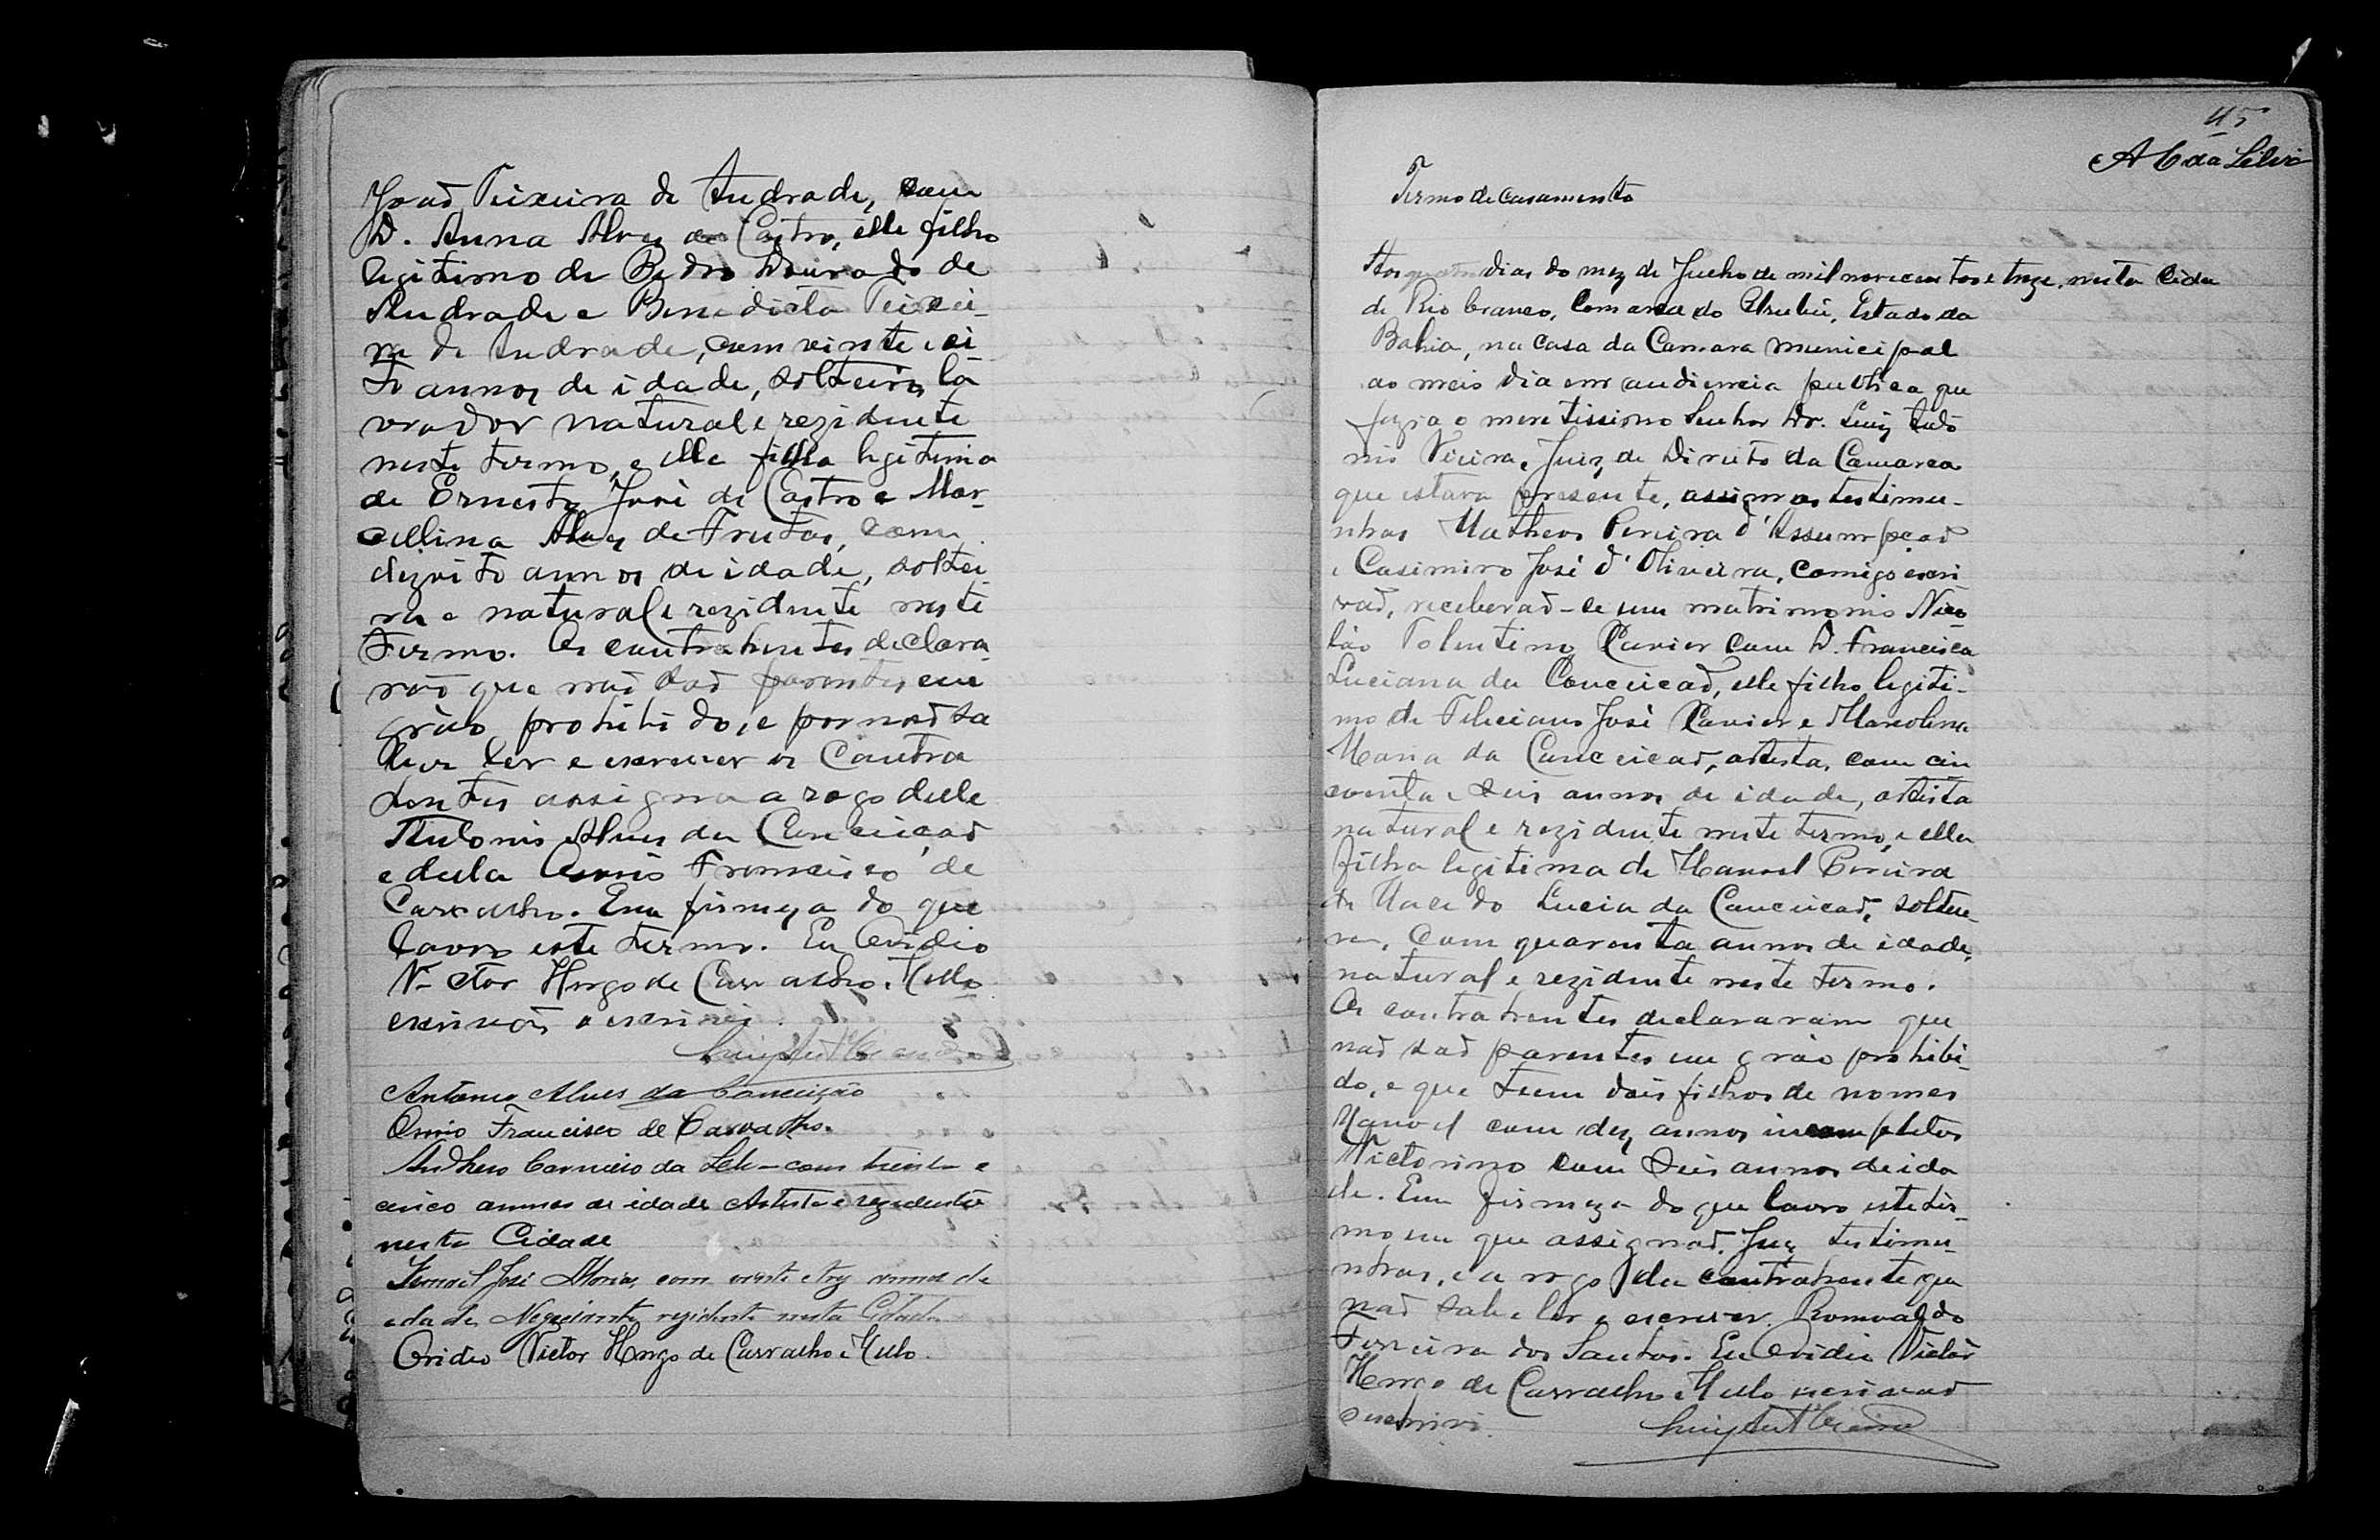 João Teixeira de Andrade, com
D. Anna Alves de Castro, elle filho
legitimo de Pedro Dourado de
Andrade e Benedicta Teixei-
ra de Andrade, com vinte e oi
to annos de idade, solteiro, la
vrador natural e rezidente
neste termo, e ella filha legitima
de Ernesto José de Castro e Mar-
cellina Alves de Freitas, com
dezoito annos de idade, soltei
ra e natural e rezidente neste
termo. Os contrahentes declara
rão que não são parentes em
gráo prohibido, e por não sa
ber ler e escrever os contra
hentes assigna a rogo delle
Antonio Alves da Conceição
e della Francisco de
Carvalho. Em firmeza do que
lavro este termo. Eu Ovidio
Victor Hugo de Carvalho e Mello
escrivão, o escrivi.
Antonio Alves da Conceição
Francisco de Carvalho.
Carneiro da com trinta e
cinco annos de idade Artista e rezidente
nesta Cidade
José com vinte e tres annos de
edade, Negociante, rezidente nesta Cidade
Ovidio Victor Hugo de Carvalho e Mello.
45
A C da Silva
Termo de casamento
Aos quatro dias do mez de Julho de mil novecentos e treze, nesta Cida
de Rio branco, Comarca do Urubú, Estado da
Bahia, na casa da Camara Municipal
ao meio dia em audiencia publica que
fazia o meretissimo Senhor Dr. Luiz Anto
nio Vieira, Juiz de Direito da Comarca
que estava presente, assim as testimu-
nhas Matheos Pereira d'Assumpção
e Casimiro José d'Oliveira, comigo escri
vão, receberão-se em matrimonio Nico
láo Tolentino Xavier com D. Francisca
Luciana da Conceicão, elle filho legiti-
mo de Feliciano José Xavier e Marcolina
Maria da Conceicão, artista, com cin
coenta e seis annos de idade, artista
natural e rezidente neste termo, e ella
filha legitima de Manoel Pereira
de Macedo Lucia da Conceicão, soltei-
ra, com quarenta annos de idade,
natural e rezidente neste termo.
Os contrahentes declararam que
não são parentes em gráo prohibi-
do, e que teem dois filhos de nomes
Manoel com dez annos incompletos
Victorino com seis annos de ida
de. Em firmeza do que lavro este ter-
mo em que assignão. Juiz, testimu-
nhas, e a rogo da contrahente que
não sabe ler e escrever. Romualdo
Ferreira dos Santos. Eu Ovidio Victor
Hugo de Carvalho e Mello escrivão
escrivi.